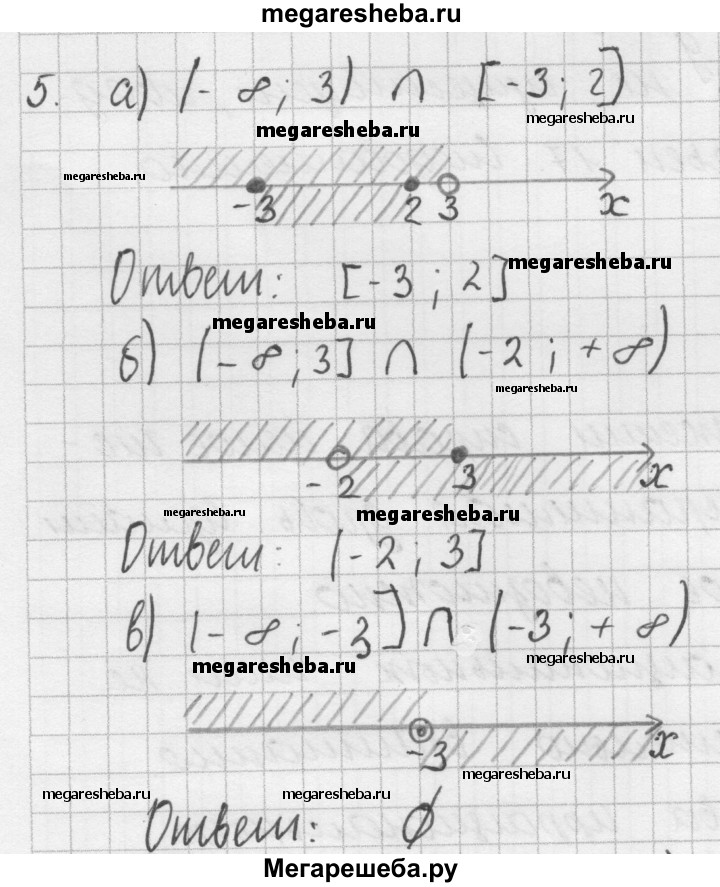 megaresheba.ru
5. а) (- ∞; 3) ∩ [-3; 2]
megaresheba.ru megaresheba.ru
megaresheba.ru
-3 2 3 x
Ответ: [-3; 2] megaresheba.ru
megaresheba.ru
б) (-∞; 3] ∩ (-2; +∞)
megaresheba.ru
-2 3 x
megaresheba.ru megaresheba.ru
Ответ: (-2; 3]
в) (-∞; -3] ∩ (-3; +∞)
megaresheba.ru megaresheba.ru
-3 x
megaresheba.ru
megaresheba.ru megaresheba.ru
Ответ: ∅
Мегарешеба.ру